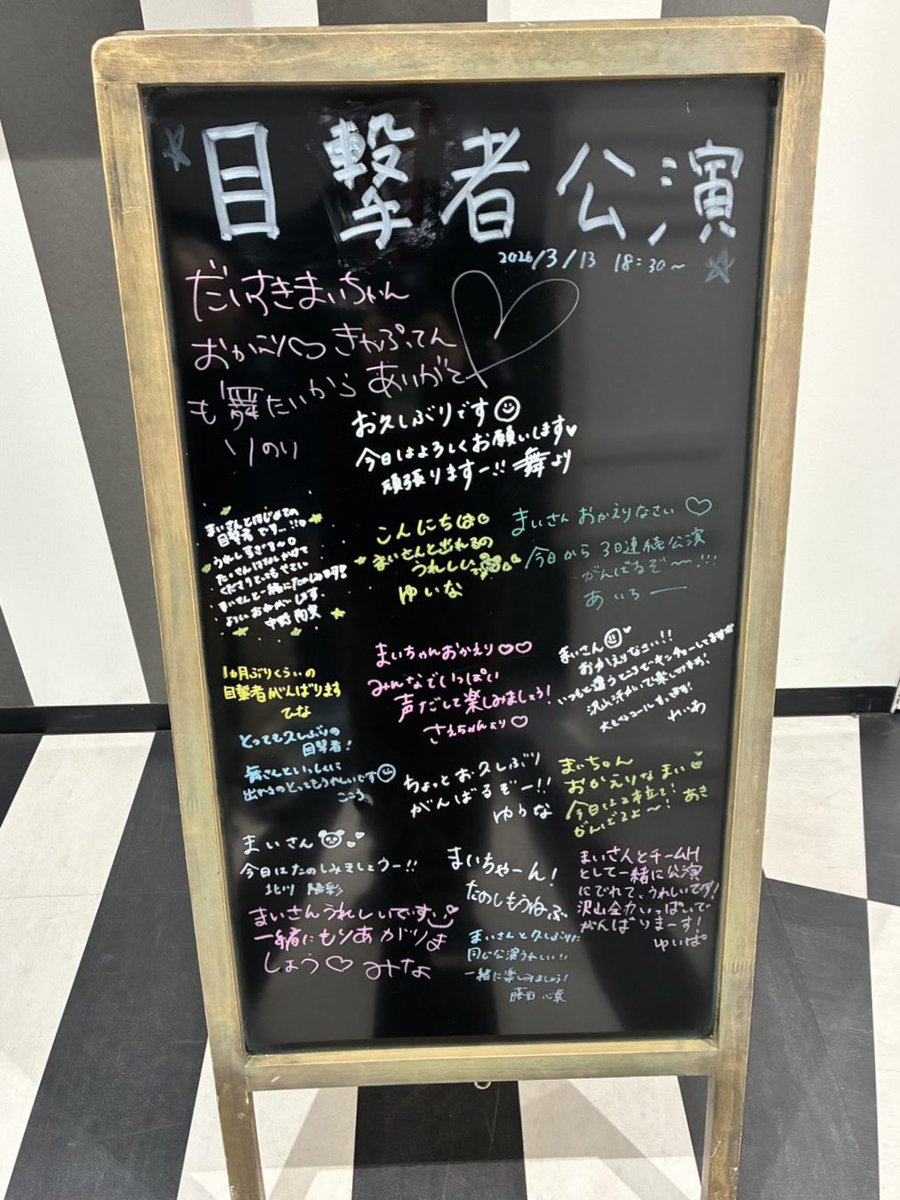 目撃者公演
2026/3/13 18:30~
だいすきまいちゃん
おかえり♡ きゃぷてん
も舞たいから あいがて
りのり
お久しぶりです
今日はよろしくお願いします
頑張りますー!! 舞より
まいさんとはじめての
目撃者ですー!!
うれしすぎる〜
たくさん
まいさんと一緒に
よろしくおねがいします
こんにちは
まいさんと出れるの
うれしい
ゆいな
まいさんおかえりなさい♡
今日から3日連続公演
がんばるぞ〜!!!
あいろー
1ヵ月ぶりくらいの
目撃者がんばります
ひな
まいちゃんおかえり♡♡
みんなでいっぱい
声だして楽しみましょう!
さえちゃんより♡
まいさん
おかえりなさい!!
いつもと違うところでキンチョーしてますが
沢山汗かいて楽しみます!
とっても久しぶりの
目撃者!
舞さんといっしょに
出れるのとってもうれしいです
こころ
ちょっとお久しぶり
がんばるぞー!!
ゆうな
まいちゃん
おかえりなまい
今日は2本立て!
がんばるよ〜! あき
まいさん
今日はたのしみましょうー!!
北川 陽彩
まいちゃーん!
たのしもうねぶ
まいさんとチームH
として一緒に公演
にでれて、うれしいです!
沢山全力いっぱいで
がんばりまーす!
ゆいぱ
まいさんうれしいです
一緒にもりあがりま
しょう♡ みな
まいさんと久しぶりに
同じ公演うれしい!!
一緒に楽しみましょう!